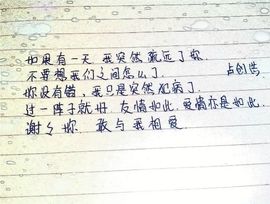 如果有一天 我突然疏远了你.
不要想我们之间怎么了.
你没有错，我只是突然犯病了.
过一阵子就好. 友情如此. 爱情亦是如此.
谢々你. 敢与我相爱.